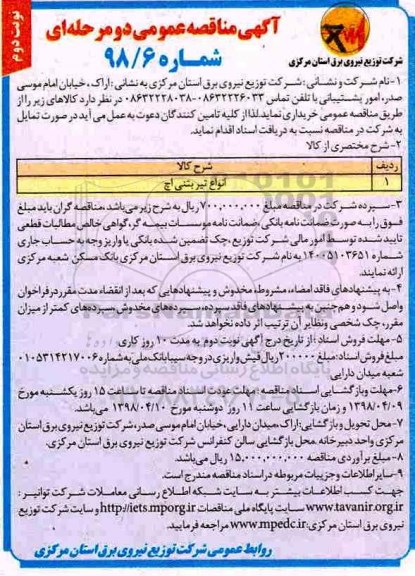 نوبت دوم
آگهی مناقصه عمومی دو مرحله ای
شماره ۹۸/۶
شرکت توزیع نیروی برق استان مرکزی
۱-نام شرکت و نشانی : شرکت توزیع نیروی برق استان مرکزی به نشانی : اراک ، خیابان امام موسی
صدر، امور پشتیبانی با تلفن تماس ۰۸۶۳۲۲۲۶۰۳۳-۰۸۶۳۲۲۲۸۰۳۸ در نظر دارد کالاهای زیر را از
طریق مناقصه عمومی خریداری نماید.لذا از کلیه تامین کنندگان دعوت به عمل می آید در صورت تمایل
به شرکت در مناقصه نسبت به دریافت اسناد اقدام نماید.
۲- شرح مختصری از کالا
ردیف شرح کالا
۱ انواع تیر بتنی اچ
۳-سپرده شرکت در مناقصه مبلغ ۷۰۰,۰۰۰,۰۰۰ ریال به شرح زیر می باشد،مناقصه گران باید مبلغ
فوق را به صورت ضمانت نامه بانکی ،ضمانت نامه موسسات بیمه گر،گواهی خالص مطالبات قطعی
تایید شده توسط امور مالی شرکت توزیع ،چک تضمین شده بانکی یا واریز وجه به حساب جاری
شماره ۱۴۰۰۵۱۰۳۶۵۱ به نام شرکت توزیع نیروی برق استان مرکزی بانک مسکن شعبه مرکزی
ارائه نمایند.
۴-به پیشنهادهای فاقد امضاء، مشروط، مخدوش و پیشنهادهایی که بعد از انقضاء مدت مقرر در فراخوان
واصل شود و هم چنین به پیشنهادهای فاقد سپرده، سپرده های مخدوش ،سپرده های کمتر از میزان
مقرر، چک شخصی و نظایر آن ترتیب اثر داده نخواهد شد.
۵- مهلت فروش اسناد : از تاریخ درج آگهی نوبت دوم به مدت ۱۰ روز کاری
مبلغ فروش اسناد:مبلغ ۲۰۰۰۰۰ ریال فیش واریزی در وجه سیبا بانک ملی به شماره ۰۱۰۵۳۱۴۲۱۷۰۰۶
شعبه میدان دارایی
۶-مهلت و بازگشایی اسناد مناقصه : مهلت عودت اسناد مناقصه تا ساعت ۱۵ روز یکشنبه مورخ
۱۳۹۸/۰۴/۰۹ و زمان بازگشایی ساعت ۱۱ روز دوشنبه مورخ ۱۳۹۸/۰۴/۱۰ می باشد.
۷-محل تحویل و بازگشایی:اراک،میدان دارایی،خیابان امام موسی صدر،شرکت توزیع نیروی برق استان
مرکزی واحد دبیرخانه .محل بازگشایی سالن کنفرانس شرکت توزیع نیروی برق استان مرکزی.
۸-مبلغ برآوردی مناقصه ۱۵,۰۰۰,۰۰۰,۰۰۰ ریال می باشد.
۹-سایر اطلاعات و جزییات مربوطه در اسناد مناقصه مندرج است.
جهت کسب اطلاعات بیشتر به سایت شبکه اطلاع رسانی معاملات شرکت توانیر :
www.tavanir.org.ir سایت پایگاه ملی مناقصات http://iets.mporg.ir و سایت شرکت توزیع
نیروی برق استان مرکزی:www.mpedc.ir مراجعه فرمایید.
روابط عمومی شرکت توزیع نیروی برق استان مرکزی